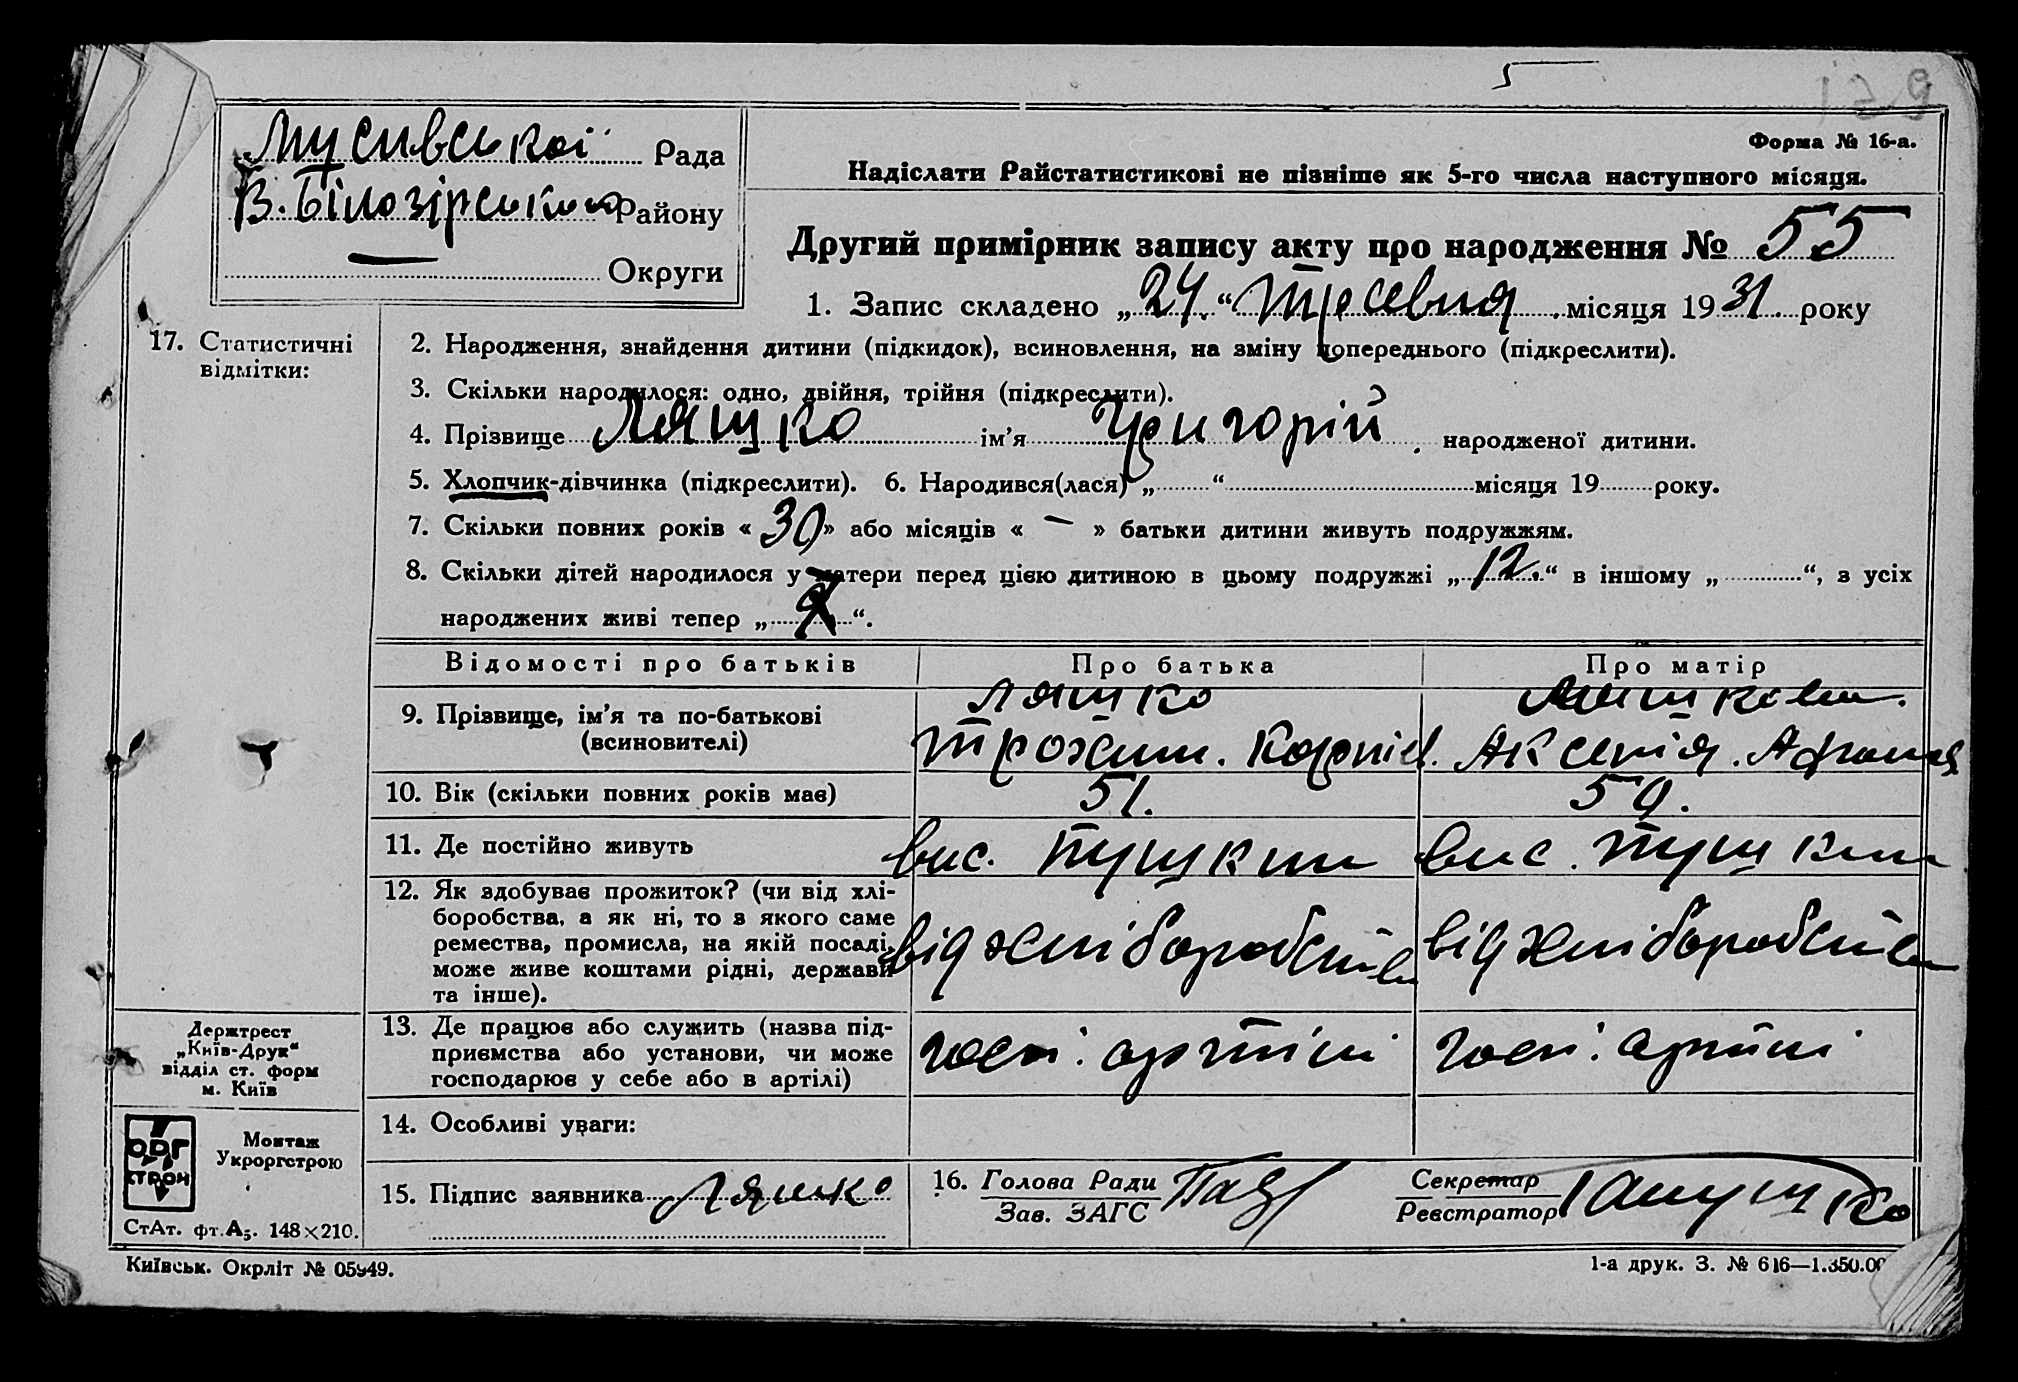 Мусивської Рада
В. Білозірського Району
— Округи
Форма № 16-а.
Надіслати Райстатистикові не пізніше як 5-го числа наступного місяця.
Другий примірник запису акту про народження № 55
1. Запис складено „24“ місяця 1931 року
17. Статистичні
відмітки:
2. Народження, знайдення дитини (підкидок), всиновлення, на зміну попереднього (підкреслити).
3. Скільки народилося: одно, двійня, трійня (підкреслити).
4. Прізвище Ляшко ім’я Григорій народженої дитини.
5. Хлопчик-дівчинка (підкреслити). 6. Народився(лася) „ “ місяця 19 року.
7. Скільки повних років « 30 » або місяців « — » батьки дитини живуть подружжям.
8. Скільки дітей народилося у матери перед цією дитиною в цьому подружжі „ 12. “ в іншому „ “, з усіх
народжених живі тепер „ “.
Відомості про батьків Про батька Про матір
9. Прізвище, ім’я та по-батькові
(всиновителі)
Ляшко
Трохим. Карпів.
Ляшкова.
Аксенія. Афанас
10. Вік (скільки повних років має) 51. 50.
11. Де постійно живуть вис. Пушкіна вис. Пушкіна
12. Як здобуває прожиток? (чи від хлі-
боробства, а як ні, то з якого саме
ремества, промисла, на якій посаді,
може живе коштами рідні, держави
та інше).
від хліборобства від хліборобства
13. Де працює або служить (назва під-
приємства або установи, чи може
господарює у себе або в артілі)
госп. артілі госп. артілі
14. Особливі уваги:
15. Підпис заявника Ляшко
16. Голова Ради
Зав. ЗАГС
Секретар
Реєстратор
Держтрест
„Київ-Друк“
відділ ст. форм
м. Київ
ОРГ
СТРОЙ
Монтаж
Укроргстрою
СтАт. фт. А5. 148×210.
Київськ. Окрліт № 05949.
1-а друк. З. № 616—1.350.00